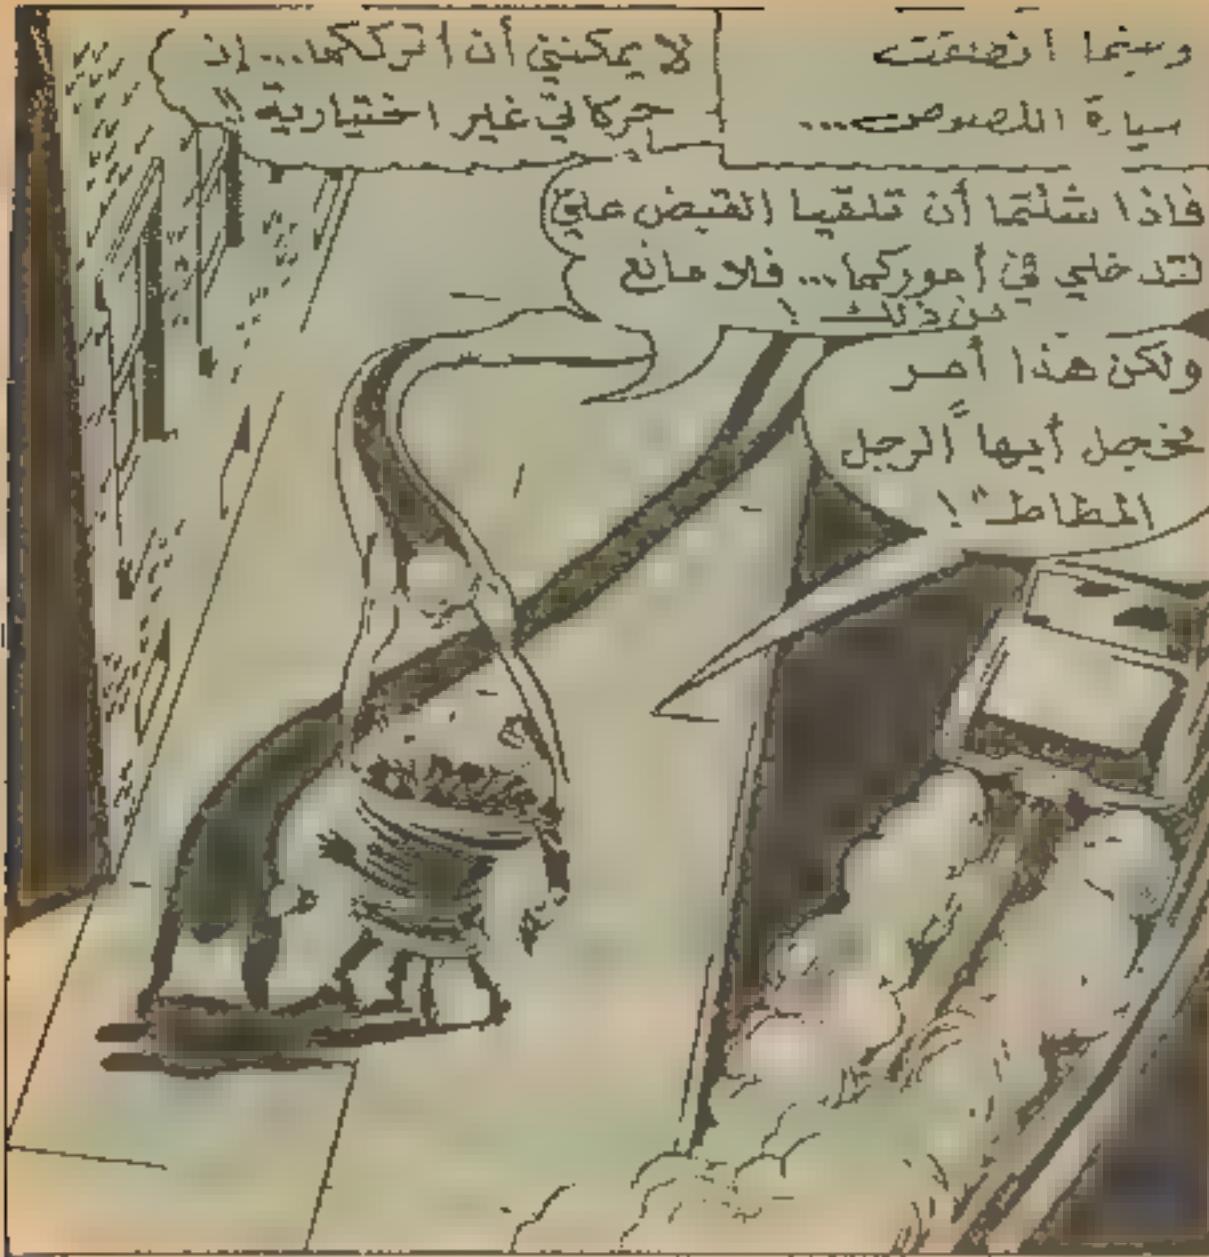 وبينما انطلقت
سيارة اللصوص...
لا يمكنني أن أترككما... إن
حركاتي غير اختيارية !!
فاذا شئتما أن تلقيا القبض علي
لتدخلي في أموركما... فلا مانع
من ذلك !
ولكن هذا أمر
مخجل أيها "الرجل
المطاط" !